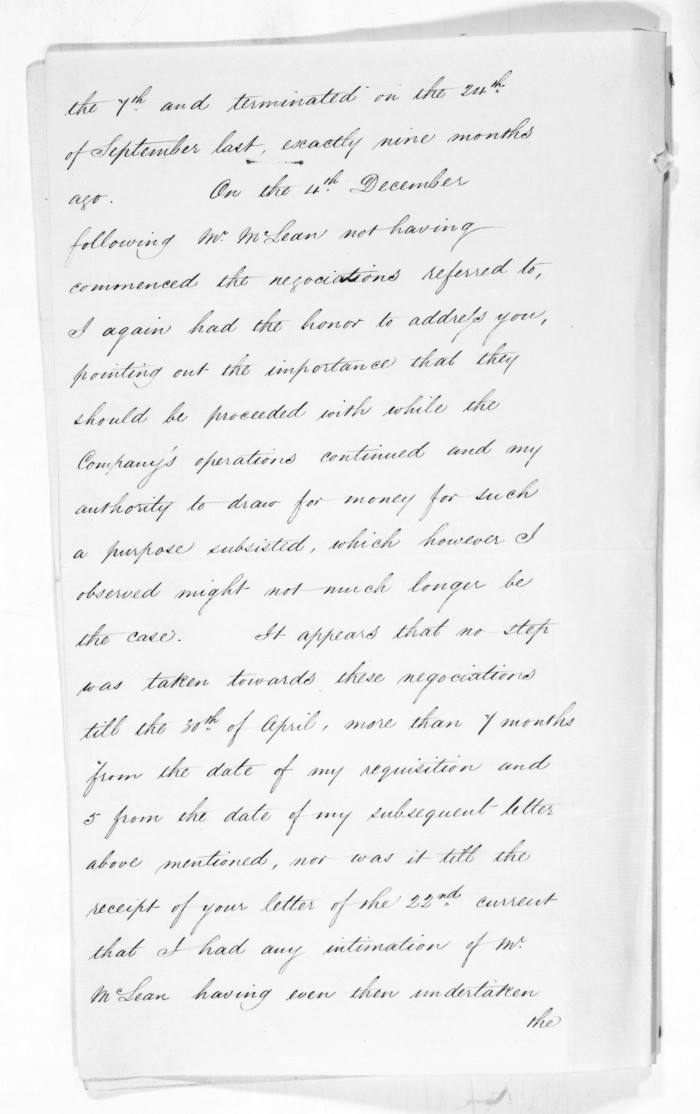 the 7th and terminated on the 24th
of September last, exactly nine months
ago. On the 4th December
following Mr. McLean not having
commenced the negociations referred to,
I again had the honor to address you,
pointing out the importance that they
should be proceeded with while the
Company's operations continued and my
authority to draw for money for such
a purpose subsisted, which however I
observed might not much longer be
the case. It appears that no step
was taken towards these negociations
till the 30th of April, more than 7 months
from the date of my requisition and
5 from the date of my subsequent letter
above mentioned, nor was it till the
receipt of your letter of the 22nd current
that I had any intimation of Mr.
McLean having even then undertaken
the